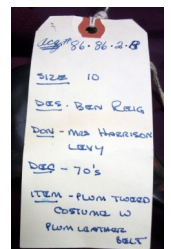 Acq# 86.86.2.B
SIZE 10
DES. BEN REIG
DON - MRS HARRISON
LEVY
DEC - 70's
ITEM - PLUM TWEED
COSTUME W
PLUM LEATHER
BELT